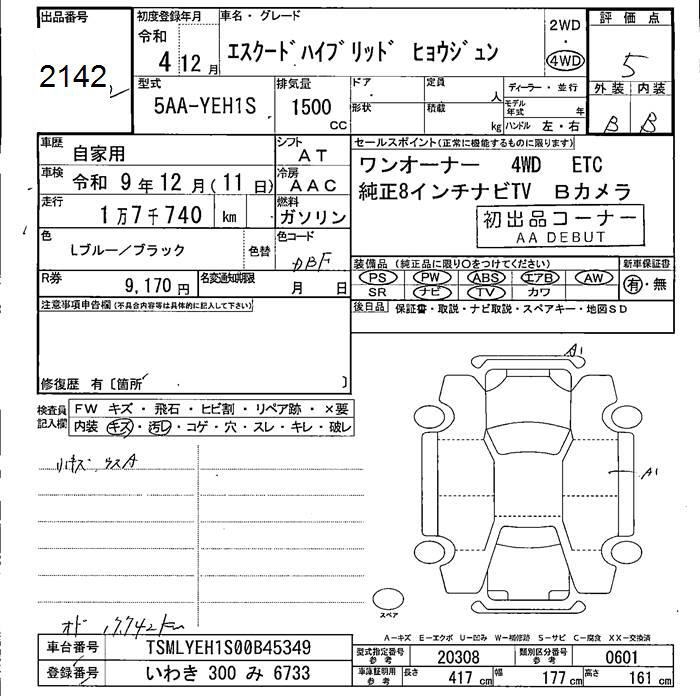 出品番号
2142
初度登録年月
令和
4年12月
車名・グレード
エスクードハイブリッド ヒョウジュン
2WD
・
4WD
評価点
5
外装 内装
B B
型式
5AA-YEH1S
排気量
1500
CC
ドア・形状
定員
人
積載
kg
ディーラー・並行
モデル年式 年
ハンドル 左・右
車歴
自家用
シフト
AT
車検
令和 9年12月(11日)
冷房
AAC
走行
1万7千740 km
燃料
ガソリン
色
Lブルー/ブラック
色替
色コード
DBF
R券
9,170円
名変通知期限
月 日
セールスポイント(正常に機能するものに限ります)
ワンオーナー 4WD ETC
純正8インチナビTV Bカメラ
初出品コーナー
AA DEBUT
装備品(純正品に限り○をつけてください)
PS PW ABS エアB AW
SR ナビ TV カワ
新車保証書
有・無
後日品 保証書・取説・ナビ取説・スペアキー・地図SD
注意事項申告欄(不具合内容等は具体的に記入して下さい)
修復歴 有〔箇所 〕
検査員記入欄
FW キズ・飛石・ヒビ割・リペア跡・×要
内装 キズ・汚レ・コゲ・穴・スレ・キレ・破レ
A1
A1
スペア
オド 17,742km
A-キズ E-エクボ U-凹み W-補修跡 S-サビ C-腐食 XX-交換済
車台番号 TSMLYEH1S00B45349
登録番号 いわき 300 み 6733
型式指定番号 参考 20308
類別区分番号 参考 0601
車庫証明用 参考 長さ 417cm 幅 177cm 高さ 161cm